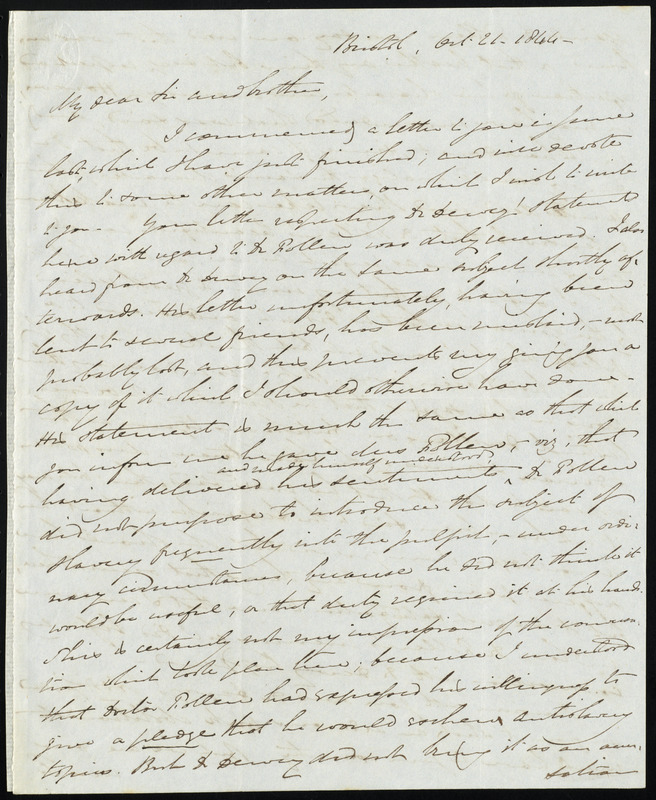 Bristol, Oct. 21. 1844 -
My dear Sir and brother,
I commenced a letter to you in June
last, which I have just finished; and will devote
this to some other matters, on which I wish to write
to you. Your letter respecting Dr Dewey's statement
here with regard to Dr Follen was duly received. I also
heard from Dr Dewey on the same subject shortly af-
terwards. His letter unfortunately, having been
lent to several friends, has been mislaid, - most
probably lost, and this prevents my giving you a
copy of it which I should otherwise have done -
His statement is much the same as that which
you inform me he gave Mrs Follen, - viz, that
and made himself understood
having delivered his sentiments ^ Dr Follen
did not purpose to introduce the subject of
slavery frequently into the pulpit, - under ordi-
nary circumstances, because he did not think it
would be useful, or that duty required it at his hands.
This is certainly not my impression of the conversa-
tion which took place here; because I understood
that Doctor Follen had expressed his willingness to
give a pledge that he would eschew antislavery
topics. But Dr Dewey did not bring it as an accu-
sation